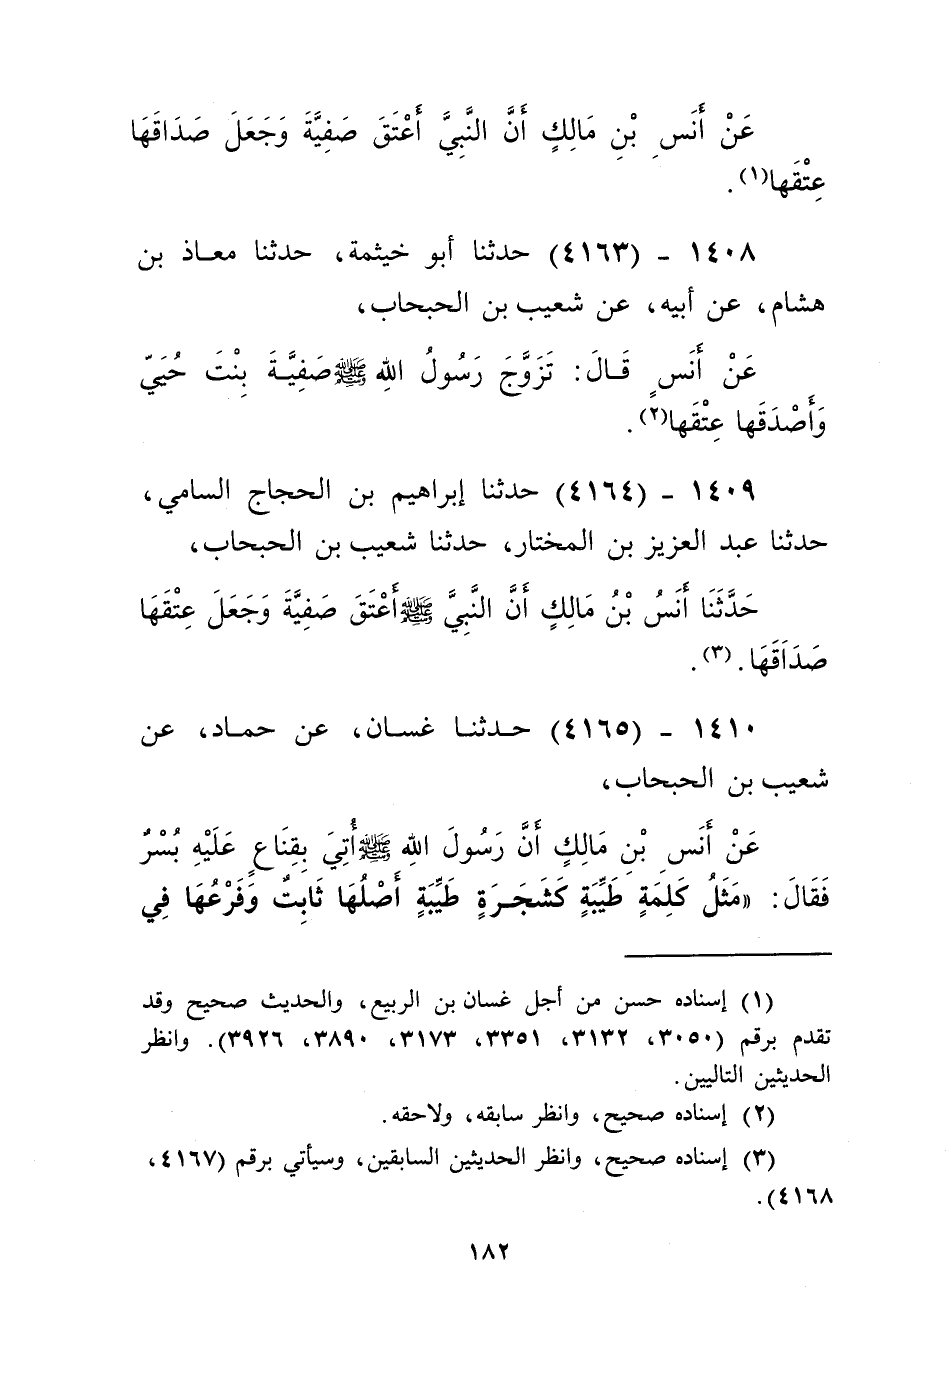 عَنْ أَنَسِ بْنِ مَالِكٍ أَنَّ النَّبِيَّ أَعْتَقَ صَفِيَّةَ وَجَعَلَ صَدَاقَهَا
عِتْقَها(١).
١٤٠٨ - (٤١٦٣) حدثنا أبو خيثمة، حدثنا معاذ بن
هشام، عن أبيه، عن شعيب بن الحبحاب،
عَنْ أَنَسٍ قَالَ: تَزَوَّجَ رَسُولُ اللهِ ﷺ صَفِيَّةَ بِنْتَ حُيَيّ
وَأَصْدَقَها عِتْقَها(٢).
١٤٠٩ - (٤١٦٤) حدثنا إبراهيم بن الحجاج السامي،
حدثنا عبد العزيز بن المختار، حدثنا شعيب بن الحبحاب،
حَدَّثَنَا أَنَسُ بْنُ مَالِكٍ أَنَّ النَّبِيَّ ﷺ أَعْتَقَ صَفِيَّةَ وَجَعَلَ عِتْقَهَا
صَدَاقَهَا. (٣).
١٤١٠ - (٤١٦٥) حدثنا غسان، عن حماد، عن
شعيب بن الحبحاب،
عَنْ أَنَسِ بْنِ مَالِكٍ أَنَّ رَسُولَ اللهِ ﷺ أُتِيَ بِقِنَاعٍ عَلَيْهِ بُسْرٌ
فَقَالَ: «مَثَلُ كَلِمَةٍ طَيِّبَةٍ كَشَجَرَةٍ طَيِّبَةٍ أَصْلُهَا ثَابِتٌ وَفَرْعُهَا فِي
(١) إسناده حسن من أجل غسان بن الربيع، والحديث صحيح وقد
تقدم برقم (٣٠٥٠، ٣١٣٢، ٣٣٥١، ٣١٧٣، ٣٨٩٠، ٣٩٢٦). وانظر
الحديثين التاليين.
(٢) إسناده صحيح، وانظر سابقه، ولاحقه.
(٣) إسناده صحيح، وانظر الحديثين السابقين، وسيأتي برقم (٤١٦٧،
٤١٦٨).
١٨٢